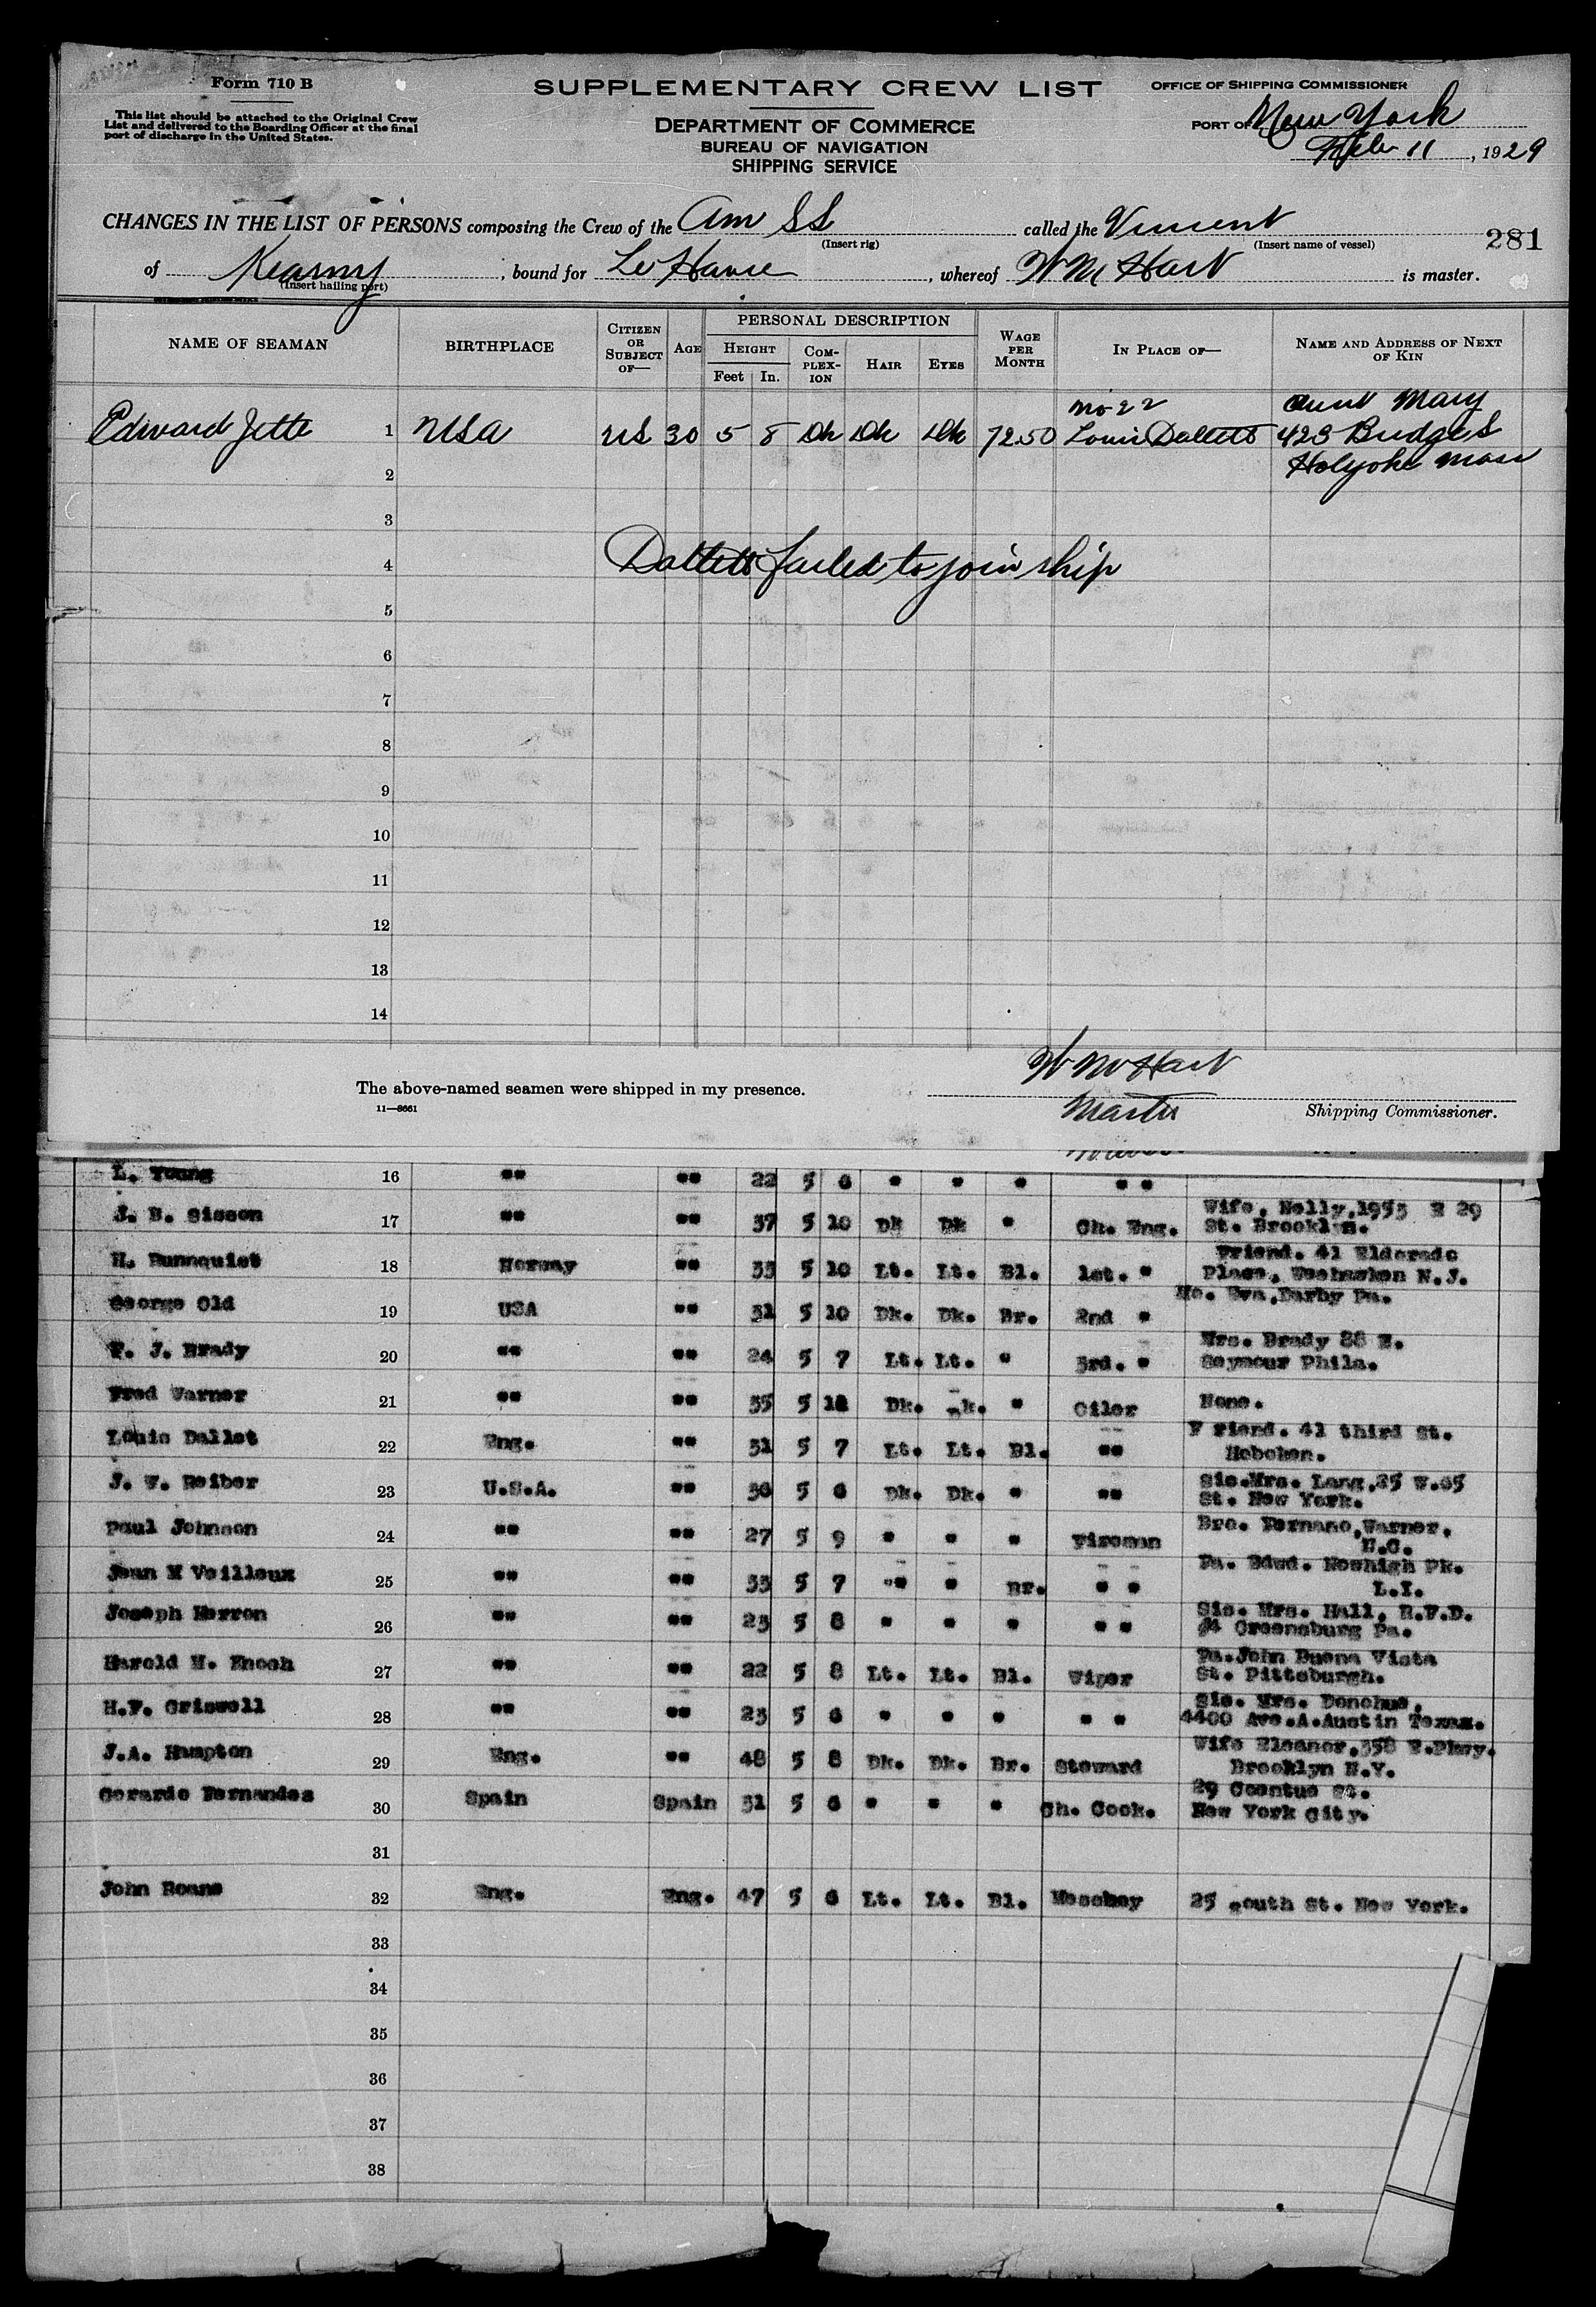 Form 710 B
This list should be attached to the Original Crew
List and delivered to the Boarding Officer at the final
port of discharge in the United States.
SUPPLEMENTARY CREW LIST
DEPARTMENT OF COMMERCE
BUREAU OF NAVIGATION
SHIPPING SERVICE
OFFICE OF SHIPPING COMMISSIONER
PORT OF New York
Feb 11, 1929
CHANGES IN THE LIST OF PERSONS composing the Crew of the Am SS called the Vincent
(Insert rig) (Insert name of vessel)
281
of Kearny, bound for Le Havre, whereof W M Hart is master.
(Insert hailing port)
NAME OF SEAMAN BIRTHPLACE CITIZEN OR SUBJECT OF— AGE PERSONAL DESCRIPTION WAGE PER MONTH IN PLACE OF— NAME AND ADDRESS OF NEXT OF KIN
HEIGHT COM-PLEX-ION HAIR EYES
Feet In.
No 22 Aunt Mary
Edward Jette 1 USA US 30 5 8 Dk Dk Dk 72.50 Louis Dallett 425 Bridge S
Holyoke Mass
2
3
4 Dallett failed to join ship
5
6
7
8
9
10
11
12
13
14
W M Hart
The above-named seamen were shipped in my presence.
11—8661
Master Shipping Commissioner.
L. Young 16 "" "" 22 5 6 " " " " "
J. B. Sisson 17 "" "" 37 5 10 Dk Dk " Ch. Eng. Wife, Nelly,1955 E 29
St. Brooklyn.
H. Runnquist 18 Norway "" 35 5 10 Lt. Lt. Bl. 1st. " Friend. 41 Eldorado
Place, Weehawken N.J.
George Old 19 USA "" 31 5 10 Dk. Dk. Br. 2nd " Mo. Eva,Darby Pa.
F. J. Brady 20 "" "" 24 5 7 Lt. Lt. " 3rd. " Mrs. Brady 88 E.
Seymour Phila.
Fred Warner 21 "" "" 35 5 11 Dk. Dk. " Oiler None.
Louis Dallet 22 Eng. "" 31 5 7 Lt. Lt. Bl. "" F riend. 41 third St.
Hoboken.
J. W. Reiber 23 U.S.A. "" 36 5 6 Dk. Dk. " "" Sis.Mrs. Lang,35 W.65
St. New York.
Paul Johnson 24 "" "" 27 5 9 " " " Fireman Bro. Fernano,Warner.
N.C.
Jean M Veilleux 25 "" "" 33 5 7 "" " Br. " " Fa. Edwd. Noshigh Pk.
L.I.
Joseph Herron 26 "" "" 23 5 8 " " " " " Sis. Mrs. Hall, R.F.D.
#4 Greensburg Pa.
Harold M. Enoch 27 "" "" 22 5 8 Lt. Lt. Bl. Wiper Fa.John Buena Vista
St. Pittsburgh.
H.F. Criswell 28 "" "" 23 5 6 " " " " " Sis. Mrs. Donohue,
4400 Ave.A.Austin Texas.
J.A. Hampton 29 Eng. "" 48 5 8 Dk. Dk. Br. Steward Wife Eleanor,358 E.Pkwy.
Brooklyn N.Y.
Gerardo Fernandes 30 Spain Spain 31 5 6 " " " Ch. Cook. 29 Coentus St.
New York City.
31
John Roans 32 Eng. Eng. 47 5 6 Lt. Lt. Bl. Messboy 25 South St. New York.
33
34
35
36
37
38